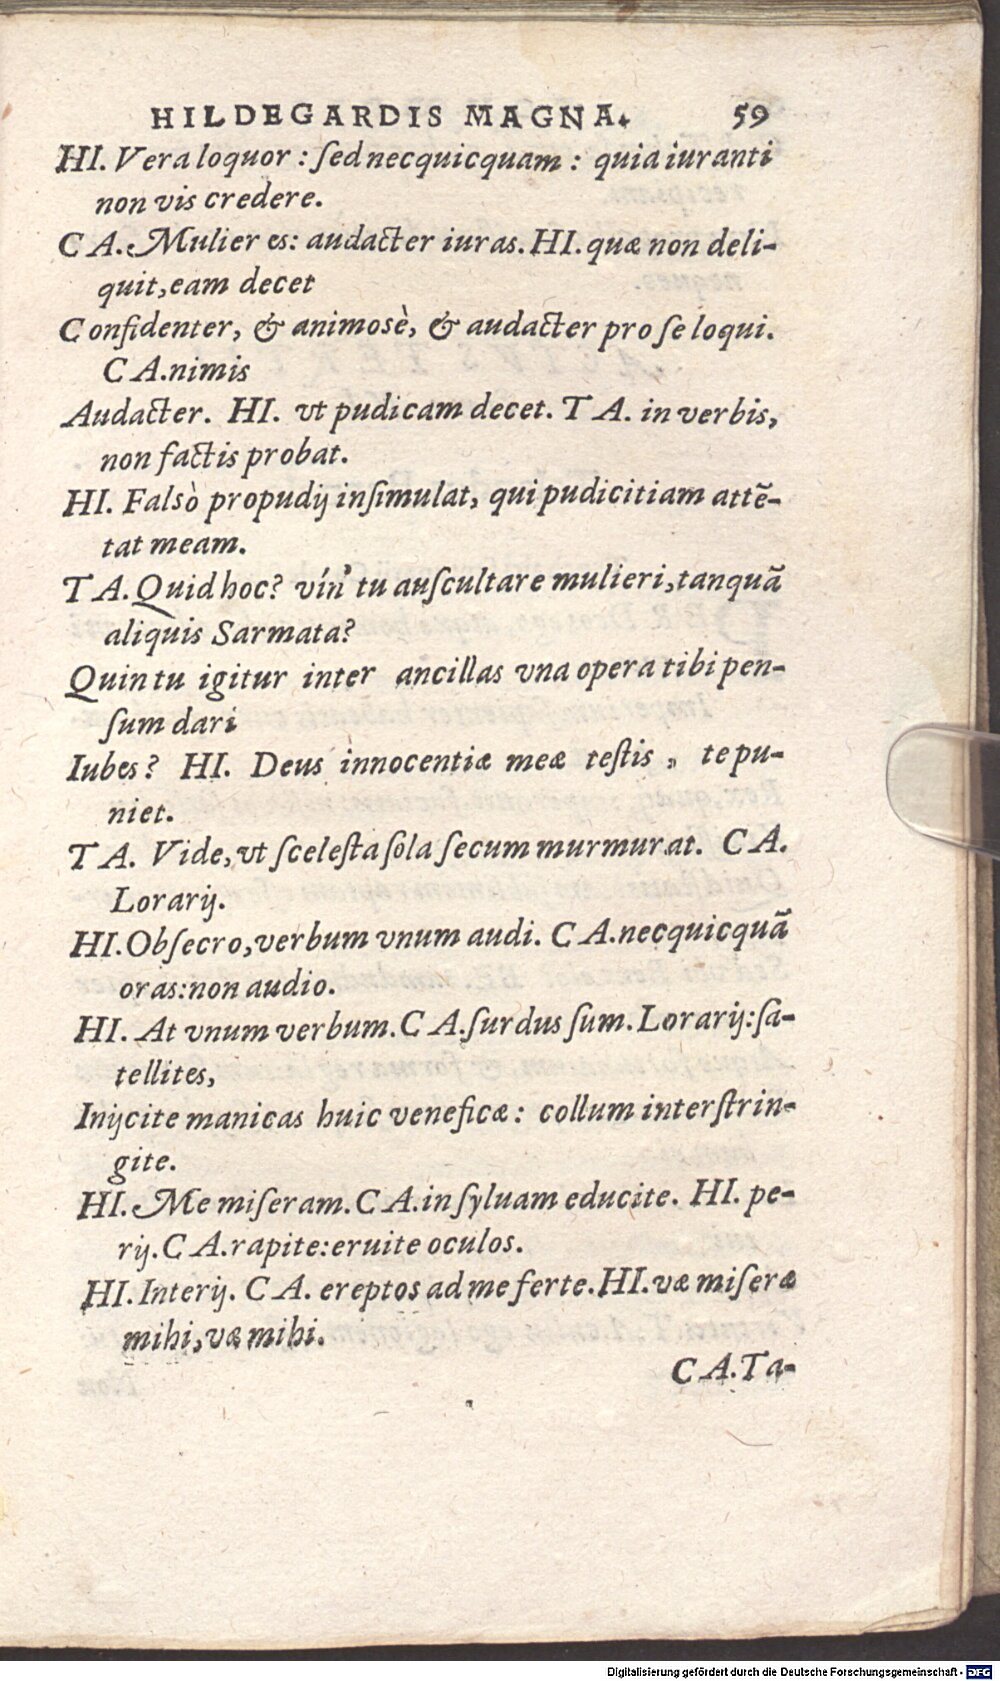 HILDEGARDIS MAGNA. 59
HI. Vera loquor : ſed necquicquam : quia iuranti
non vis credere.
CA. Mulier es: audacter iuras. HI. quæ non deli-
quit, eam decet
Confidenter, & animosè, & audacter pro ſe loqui.
CA. nimis
Audacter. HI. vt pudicam decet. TA. in verbis,
non factis probat.
HI. Falsò propudij inſimulat, qui pudicitiam attẽ-
tat meam.
TA. Quid hoc? vín' tu auſcultare mulieri, tanquã
aliquis Sarmata?
Quin tu igitur inter ancillas vna opera tibi pen-
ſum dari
Iubes? HI. Deus innocentiæ meæ teſtis, te pu-
niet.
TA. Vide, vt ſceleſta ſola ſecum murmurat. CA.
Lorarij.
HI. Obſecro, verbum vnum audi. CA. necquicquã
oras: non audio.
HI. At vnum verbum. CA. ſurdus ſum. Lorarij: ſa-
tellites,
Inijcite manicas huic veneficæ : collum interſtrin-
gite.
HI. Me miſeram. CA. in ſyluam educite. HI. pe-
rij. CA. rapite: eruite oculos.
HI. Interij. CA. ereptos ad me ferte. HI. væ miſeræ
mihi, væ mihi.
CA. Ta-
Digitalisierung gefördert durch die Deutsche Forschungsgemeinschaft - DFG